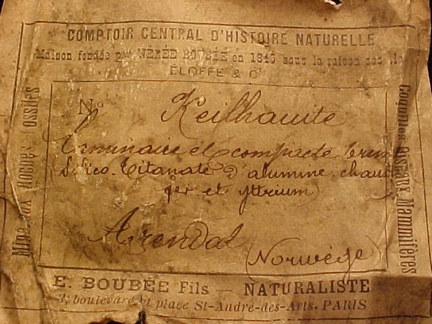 COMPTOIR CENTRAL D'HISTOIRE NATURELLE
Maison fondée par NÉRÉE BOUBÉE en 1845 sous la raison sociale
ÉLOFFE & Cie
No Keilhauite
Laminaire et compacte brun
(Silico-titanate d'alumine, chaux
fer et yttrium)
Arendal
(Norwège)
Minéraux Roches Fossiles
Coquilles Oiseaux Mammifères
E. BOUBÉE Fils — NATURALISTE
3, boulevard et place St-André-des-Arts, PARIS